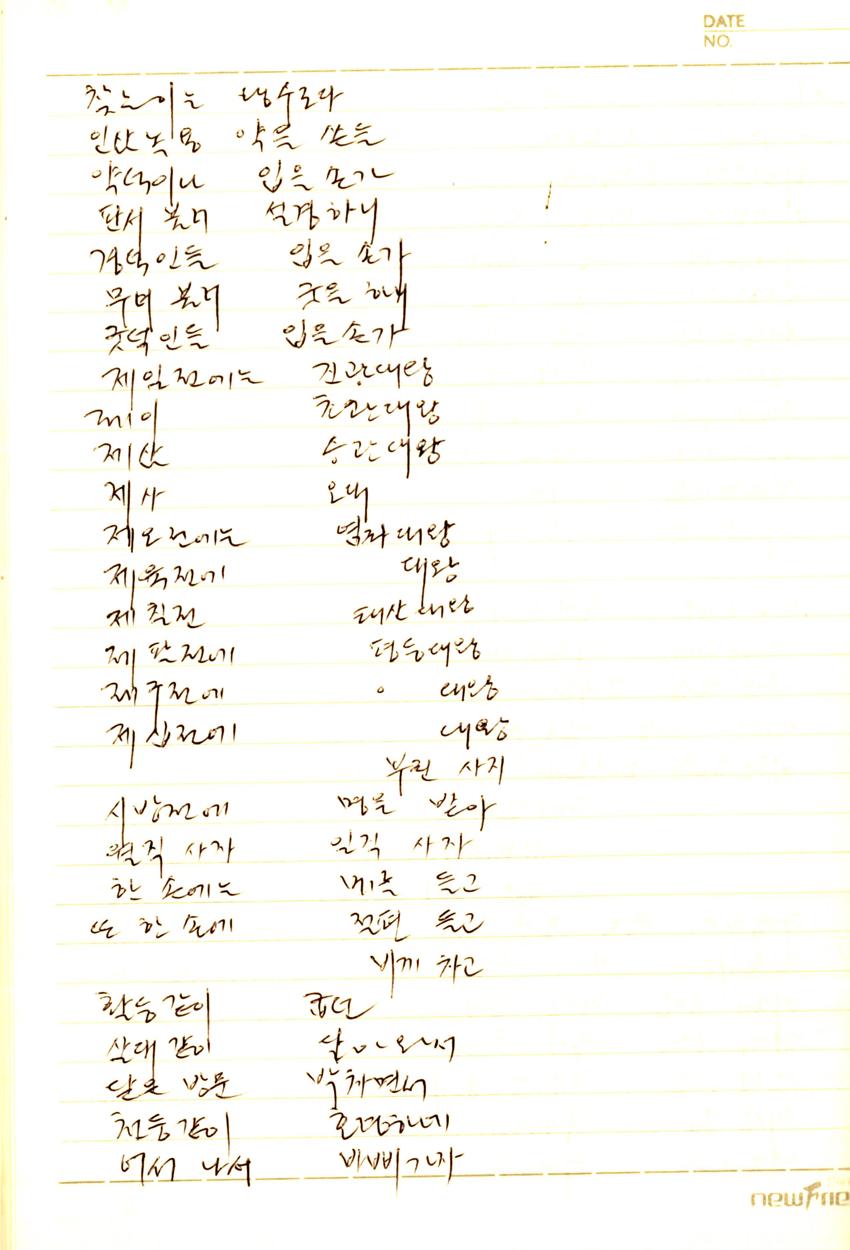 DATE
NO.
찾느이는 냉수로다
인삼녹용 약을 쓴들
약덕이나 입을손가
판서 불러 설경하니
경덕인들 입을 손가
무녀 불러 굿을 하매
굿덕인들 입을손가
제일전에는 진광대왕
제이 초관대왕
제삼 송관대왕
제사 오대
제오전에는 염라대왕
제육전에 대왕
제칠전 태산대왕
제팔전에 평등대왕
제구전에 대왕
제십전에 대왕
부린 사자
시방전에 명을 받아
월직 사자 일직 사자
한 손에는 들고
또 한 손에 철편 들고
차고
활등같이 굽은
살대같이 달아와서
닫은 방문 박차면서
천둥같이 호령하네
어서 나서 바삐가자
newFrie